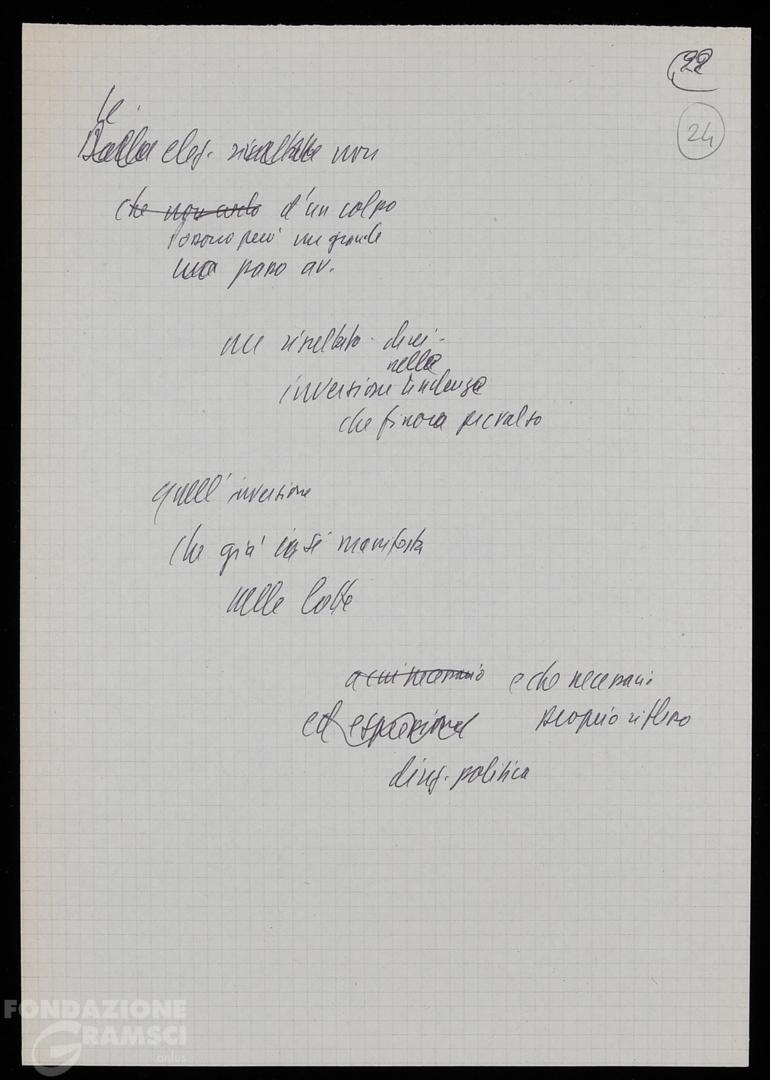 22
24
Le
Dalle elez. risultato non
che non certo d'un colpo
Possono però un grande
una passo av.
un risultato
nella
inversione tendenza
che finora prevalso
quell'inversione
che già si manifesta
nelle lotte
a cui necessario e che necessario
ed espressione proprio riflesso
direz. politica
FONDAZIONE
GRAMSCI
onlus